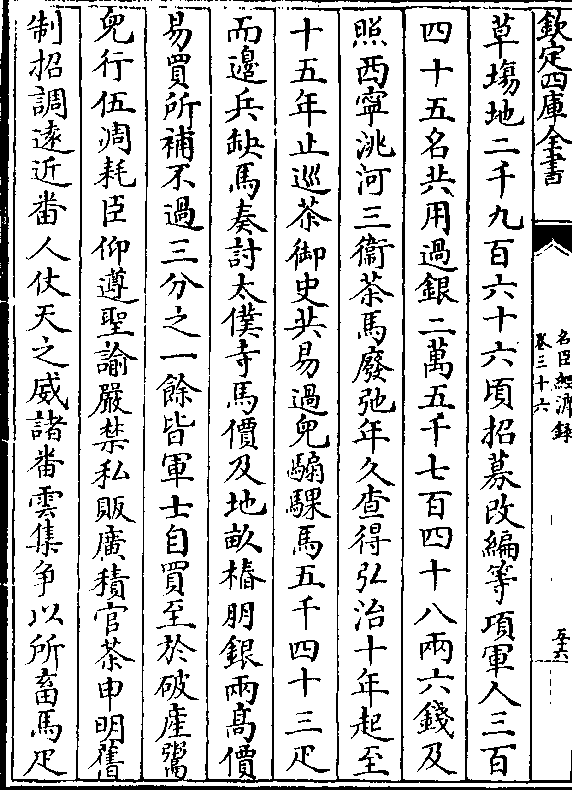 欽定四庫全書
名臣經濟録
卷三十六
五六
草塲地二千九百六十六頃招募改編等項軍人三百
四十五名共用過銀二萬五千七百四十八兩六錢及
照西寧洮河三衛茶馬廢弛年久查得弘治十年起至
十五年止巡茶御史共易過兒騸騍馬五千四十三疋
而邊兵缺馬奏討太僕寺馬價及地畝樁朋銀兩高價
易買所補不過三分之一餘皆軍士自買至於破産鬻
兒行伍凋耗臣仰遵聖諭嚴禁私販廣積官茶申明舊
制招調遠近畨人仗天之威諸畨雲集爭以所畜馬疋